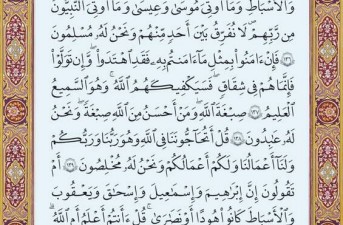 وَٱلْأَسْبَاطِ وَمَآ أُوتِىَ مُوسَىٰ وَعِيسَىٰ وَمَآ أُوتِىَ ٱلنَّبِيُّونَ
مِن رَّبِّهِمْ لَا نُفَرِّقُ بَيْنَ أَحَدٍ مِّنْهُمْ وَنَحْنُ لَهُۥ مُسْلِمُونَ
١٣٦ فَإِنْ ءَامَنُوا۟ بِمِثْلِ مَآ ءَامَنتُم بِهِۦ فَقَدِ ٱهْتَدَوا۟ وَّإِن تَوَلَّوْا۟
فَإِنَّمَا هُمْ فِى شِقَاقٍ فَسَيَكْفِيكَهُمُ ٱللَّهُ وَهُوَ ٱلسَّمِيعُ
ٱلْعَلِيمُ ١٣٧ صِبْغَةَ ٱللَّهِ وَمَنْ أَحْسَنُ مِنَ ٱللَّهِ صِبْغَةً وَنَحْنُ
لَهُۥ عَـٰبِدُونَ ١٣٨ قُلْ أَتُحَآجُّونَنَا فِى ٱللَّهِ وَهُوَ رَبُّنَا وَرَبُّكُمْ
وَلَنَآ أَعْمَـٰلُنَا وَلَكُمْ أَعْمَـٰلُكُمْ وَنَحْنُ لَهُۥ مُخْلِصُونَ ١٣٩ أَمْ
تَقُولُونَ إِنَّ إِبْرَٰهِـۧمَ وَإِسْمَـٰعِيلَ وَإِسْحَـٰقَ وَيَعْقُوبَ
وَٱلْأَسْبَاطَ كَانُوا۟ هُودًا أَوْ نَصَـٰرَىٰ قُلْ ءَأَنتُمْ أَعْلَمُ أَمِ ٱللَّهُ